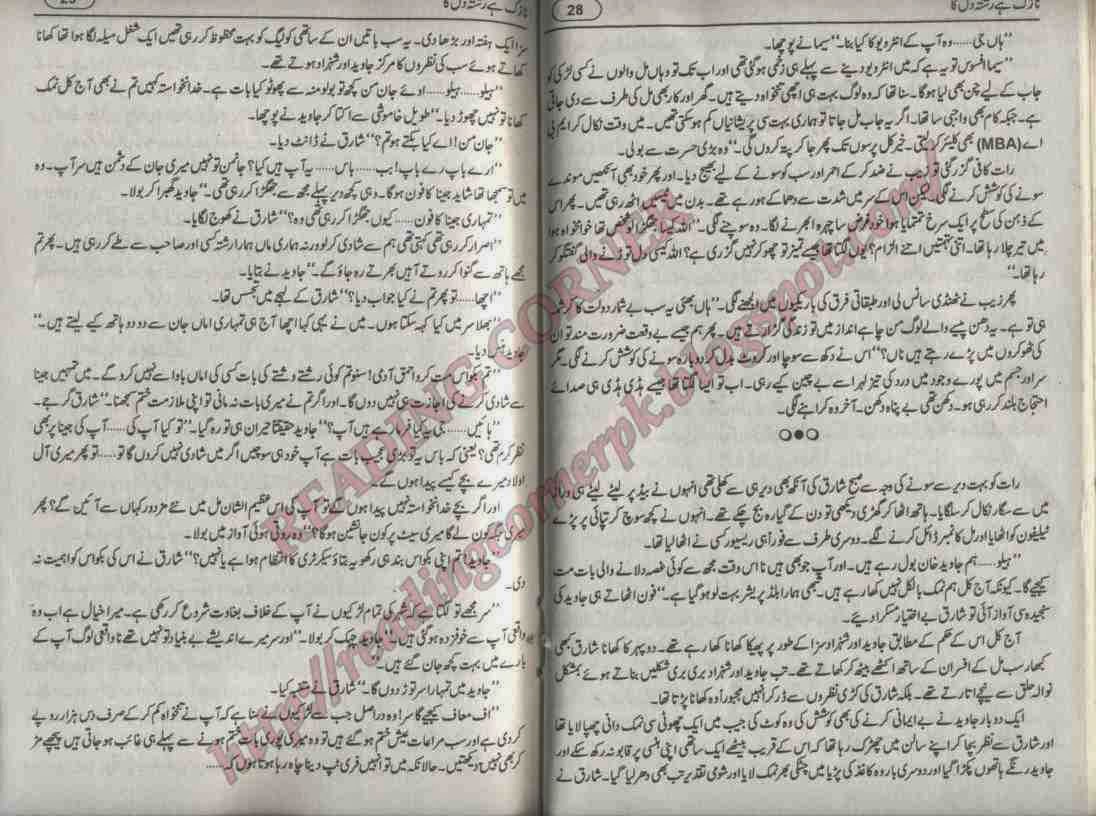 28
نازک ہے رشتہ دل کا
”ہاں جی......وہ آپ کے انٹرویو کا کیا بنا۔“ سیما نے پوچھا۔
”سیما افسوس تو یہ ہے کہ میں انٹرویو دینے سے پہلے ہی زخمی ہو گئی تھی اور اب تک تو وہاں مل والوں نے کسی لڑکی کو
جاب کے لیے چن بھی لیا ہو گا۔ سنا تھا کہ وہ لوگ بہت ہی اچھی تنخواہ دیتے ہیں۔ گھر اور کار بھی مل کی طرف سے دی جاتی
ہے۔ جبکہ کام بھی واجبی سا تھا۔ اگر یہ جاب مل جاتا تو ہماری بہت سی پریشانیاں کم ہو سکتی تھیں۔ میں وقت نکال کر ایم بی
اے (MBA) بھی کلیئر کر لیتی۔ خیر کل پرسوں تک پھر جا کر پتہ کروں گی۔“ وہ بڑی حسرت سے بولی۔
رات کافی گزر گئی تو زیب نے ضد کر کے احمر اور سب کو سونے کے لیے بھیج دیا۔ اور پھر خود بھی آنکھیں موندے
سونے کی کوشش کرنے لگی۔ لیکن اس کے سر میں شدت سے دھماکے ہو رہے تھے۔ بدن میں ٹیسیں اٹھ رہی تھیں۔ پھر اس
کے ذہن کی سطح پر ایک سرخ تمتمایا ہوا خود غرض سا چہرہ ابھرنے لگا۔ وہ سوچنے لگی۔ ”اللہ کیسا جھگڑالو شخص تھا خوامخواہ ہوا
میں تیر چلا رہا تھا۔ اتنی تہمتیں اتنے الزام؟ یوں لگتا تھا جیسے تمیز تو چھو کر نہیں گزری ہے؟ اللہ کیسی دل توڑنے والی گفتگو کر
رہا تھا۔“
پھر زیب نے ٹھنڈی سانس لی اور طبقاتی فرق کی باریکیوں میں الجھنے لگی۔ ”ہاں بھئی یہ سب بے شمار دولت کا کرشمہ
ہی تو ہے۔ یہ دھن پیسے والے لوگ من چاہے انداز میں تو زندگی گزارتے ہیں۔ پھر ہم جیسے بے وقعت ضرورت مند تو ان
کی ٹھوکروں میں پڑے رہتے ہیں ناں؟“ اس نے دکھ سے سوچا اور کروٹ بدل کر دوبارہ سونے کی کوشش کرنے لگی۔ مگر
سر اور جسم میں پورے وجود میں درد کی تیز لہر اسے بے چین کیے رہی۔ اب تو ایسا لگتا تھا جیسے ہڈی ہڈی ہی صدائے
احتجاج بلند کر رہی ہو۔ دکھن تھی بے پناہ دکھن۔ آخر وہ کراہنے لگی۔
رات کو بہت دیر سے سونے کی وجہ سے صبح شارق کی آنکھ بھی دیر ہی سے کھلی تھی انہوں نے بیڈ پر لیٹے لیٹے ہی دراز
میں سے سگار نکال کر سلگایا۔ ہاتھ اٹھا کر گھڑی دیکھی تو دن کے گیارہ بج چکے تھے۔ انہوں نے کچھ سوچ کر تپائی پر پڑے
ٹیلیفون کو اٹھایا اور مل کا نمبر ڈائل کرنے لگے۔ دوسری طرف سے فوراً ہی ریسیور کسی نے اٹھا لیا تھا۔
”ہیلو......ہم جاوید خان بول رہے ہیں۔ اور آپ جو بھی ہیں نا اس وقت مجھ سے کوئی غصہ دلانے والی بات مت
کیجئے گا۔ کیونکہ آج کل ہم نمک بالکل نہیں کھا رہے ہیں۔ تبھی ہمارا بلڈ پریشر بہت لو ہو گیا ہے۔“ فون اٹھاتے ہی جاوید کی
سنجیدہ سی آواز آئی تو شارق بے اختیار مسکرا دیئے۔
آج کل اس کے حکم کے مطابق جاوید اور شہزاد سزا کے طور پر پھیکا کھانا کھا رہے تھے۔ دوپہر کا کھانا شارق کبھی
کبھار سب مل کے افسران کے ساتھ اکٹھے بیٹھ کر کھاتے تھے۔ تب جاوید اور شہزاد بری بری شکلیں بناتے ہوئے بمشکل
نوالہ حلق سے نیچے اتارتے تھے۔ بلکہ شارق کی کڑی نظروں سے ڈر کر انہیں مجبوراً وہ کھانا پڑتا تھا۔
ایک دو بار جاوید نے بے ایمانی کرنے کی بھی کوشش کی وہ کوٹ کی جیب میں ایک چھوٹی سی نمک دانی چھپا لایا تھا
اور شارق سے نظر بچا کر اپنے سالن میں چھڑک رہا تھا کہ اس کے قریب بیٹھے ایک ساتھی اپنی ہنسی پر قابو نہ رکھ سکے اور
جاوید رنگے ہاتھوں پکڑا گیا اور دوسری بار وہ کاغذ کی پڑیا میں چٹکی بھر نمک لایا اور شومئی تقدیر تب بھی دھر لیا گیا۔ شارق نے
نازک ہے رشتہ دل کا
سزا ایک ہفتہ اور بڑھا دی۔ یہ سب باتیں ان کے ساتھی کولیگ کو بہت محظوظ کر رہی تھیں ایک شغل میلہ لگا ہوا تھا کھانا
کھاتے ہوئے سب کی نظروں کا مرکز جاوید اور شہزاد ہوتے تھے۔
”ہیلو......ہیلو......اوئے جان من کچھ تو بولو منہ سے پھوٹو کیا بات ہے۔ خدانخواستہ کہیں تم نے بھی آج کل نمک
کھانا تو نہیں چھوڑ دیا۔“ طویل خاموشی سے اکتا کر جاوید نے پوچھا۔
”جان من! اے کیا بکتے ہو تم؟“ شارق نے ڈانٹ دیا۔
”ارے باپ رے باپ! بب......باس......یہ آپ ہیں کیا؟ جانمن تو نہیں میری جان کے دشمن ہیں سر آپ۔ وہ
میں تو سمجھا تھا شاید جینا کا فون ہو گا۔ وہی کچھ دیر پہلے مجھ سے جھگڑا کر رہی تھی۔“ جاوید گھبرا کر بولا۔
”تمہاری جینا کا فون......کیوں جھگڑا کر رہی تھی وہ؟“ شارق نے کھوج لگایا۔
”اصرار کر رہی تھی کہتی تھی ہم سے شادی کر لو ورنہ ہماری ماں ہمارا رشتہ کسی اور صاحب سے طے کر رہی ہیں۔ پھر تم
مجھے ہاتھ سے گنوا کر روتے آہیں بھرتے رہ جاؤ گے۔“ جاوید نے بتایا۔
”اچھا......تو پھر تم نے کیا جواب دیا؟“ شارق کے لہجے میں تجسس تھا۔
”بھلا سر میں کیا کہہ سکتا ہوں۔ میں نے یہی کہا اچھا آج ہی تمہاری اماں جان سے دو دو ہاتھ کیے لیتے ہیں۔“
جاوید ہنس دیا۔
”تم بکواس مت کرو احمق آدمی! سنو تم کوئی رشتے وشتے کی بات کسی کی اماں باوا سے نہیں کرو گے۔ میں تمہیں جینا
سے شادی کرنے کی اجازت ہی نہیں دوں گا۔ اور اگر تم نے میری بات نہ مانی تو اپنی ملازمت ختم سمجھنا۔“ شارق گرجے۔
”ہائیں......جی یہ کیا فرما رہے ہیں آپ؟“ جاوید حقیقتاً حیران ہی تو رہ گیا۔ ”تو کیا آپ کی......آپ کی جینا پر بھی
نظر کرم تھی؟ یعنی کہ باس یہ تو بڑی عجیب بات ہے آپ خود ہی سوچیں اگر میں شادی نہیں کروں گا تو......تو پھر میری آل
اولاد میرے بچے کیسے پیدا ہوں گے۔
اور اگر بچے خدانخواستہ نہیں پیدا ہوں گے تو آپ کی اس عظیم الشان مل میں نئے مزدور کہاں سے آئیں گے؟ پھر
میری جگہ کون لے گا میری سیٹ پر کون جانشین ہو گا؟“ وہ روتی ہوئی آواز میں بولا۔
”جاوید! تم اپنی بکواس بند ہی رکھو یہ بتاؤ سیکرٹری کا انتظام ہوا ہے یا نہیں؟“ شارق نے اس کی بکواس کو اہمیت نہ
دی۔
”سر مجھے تو لگتا ہے کہ شہر کی تمام لڑکیوں نے آپ کے خلاف بغاوت شروع کر رکھی ہے۔ میرا خیال ہے اب وہ
واقعی آپ سے خوفزدہ ہو گئی ہیں۔“ جاوید چہک کر بولا۔ ”اور سر میرے اندیشے بے بنیاد تو نہیں تھے نا واقعی لوگ آپ کے
بارے میں بہت کچھ جان گئے ہیں۔
”جاوید میں تمہارا سر توڑ دوں گا۔“ شارق نے تنبیہہ کیا۔
”اف معاف کیجئے گا سر! وہ دراصل جب سے لڑکیوں نے سنا ہے کہ آپ نے تنخواہ کم کر کے صرف دس ہزار روپے
کر دی ہے اور سب مراعات عیش ختم ہو گئے ہیں تو وہ میری پوری بات ختم ہونے سے پہلے ہی غائب ہو جاتی ہیں پیچھے مڑ
کر بھی نہیں دیکھتیں۔ حالانکہ میں تو انہیں فری ٹپ دینا چاہ رہا ہوتا ہوں کہ......
READING CORNER
http://readingcornerpk.blogspot.com/